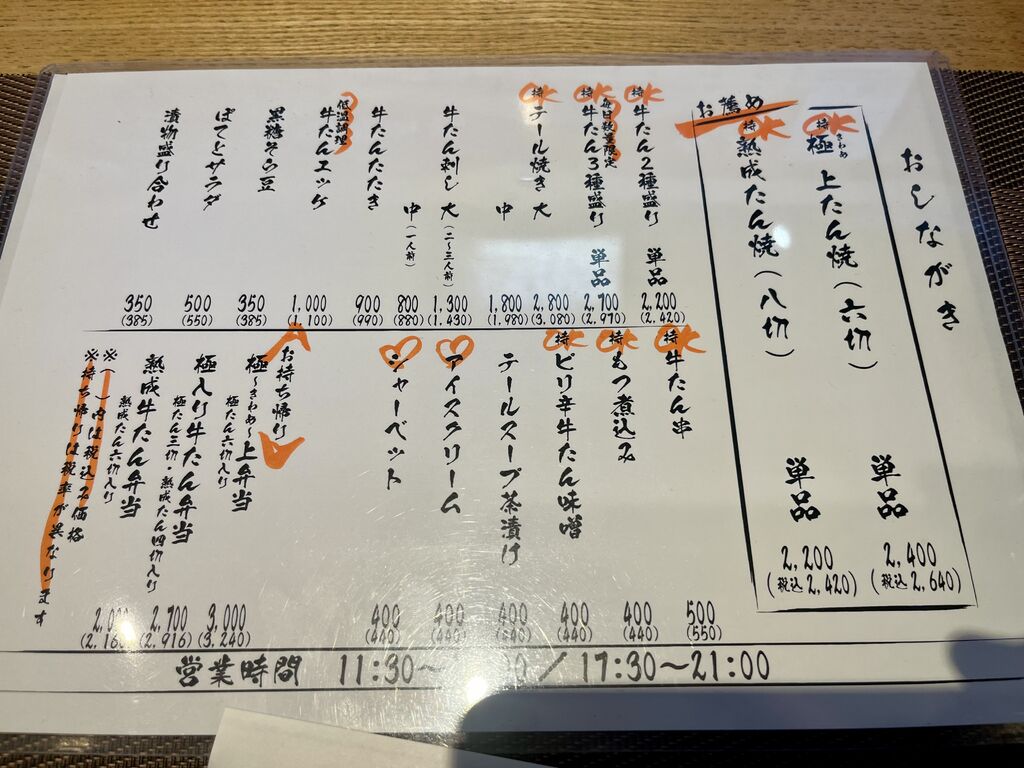 おしながき
特 OK
極 きわめ 上たん焼(六切) 単品 2,400 (税込2,640)
お薦め
特 OK
熟成たん焼(八切) 単品 2,200 (税込2,420)
特 OK
牛たん2種盛り 単品 2,200 (2,420)
特 OK
毎日数量限定
牛たん3種盛り 単品 2,700 (2,970)
特 OK
テール焼き 大 2,800 (3,080)
中 1,800 (1,980)
牛たん刺し 大(二〜三人前) 1,300 (1,430)
中(一人前) 800 (880)
牛たんたたき 900 (990)
低温調理
牛たんユッケ 1,000 (1,100)
黒糖そら豆 350 (385)
ぽてとサラダ 500 (550)
漬物盛り合わせ 350 (385)
特 OK
牛たん串 500 (550)
特 OK
もつ煮込み 400 (440)
特 OK
ピリ辛牛たん味噌 400 (440)
テールスープ茶漬け 400
アイスクリーム 400 (440)
シャーベット 400 (440)
お持ち帰り
極〜きわめ〜上弁当 3,000 (3,240)
極たん六切入り
極入り牛たん弁当 2,700 (2,916)
極たん三切・熟成たん四切入り
熟成牛たん弁当
熟成たん六切入り
※( )内は税込み価格
※持ち帰りは税率が異なります
営業時間 11:30〜 / 17:30〜21:00